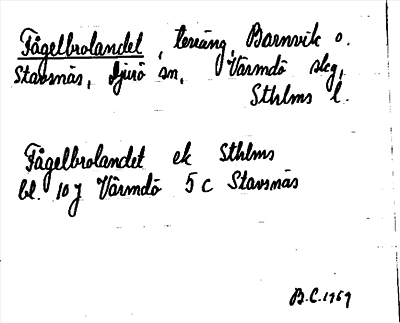 Fågelbrolandet, terräng, Barnvik o.
Stavsnäs, Djurö sn, Värmdö skg,
Sthlms l.
Fågelbrolandet ek Sthlms
bl. 10 J Värmdö 5 c Stavsnäs
B.C. 1959